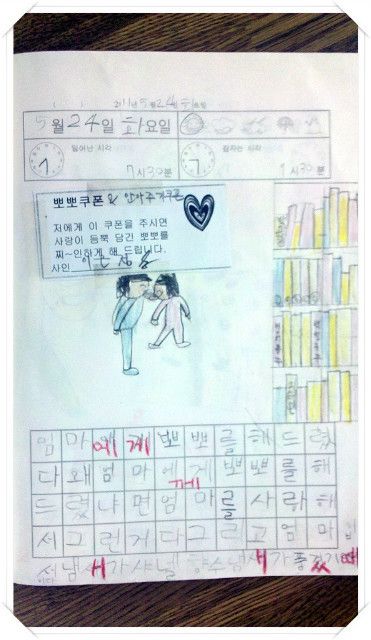 5월 24일 화요일
일어난 시각
잠자는 시각
7시 30분
9시 30분
뽀뽀쿠폰 & 안아주기쿠폰
저에게 이 쿠폰을 주시면
사랑이 듬뿍 담긴 뽀뽀를
찌~인하게 해 드립니다.
사인
엄마에게 뽀뽀를 해드렸
다 왜 엄마에게 뽀뽀를 해
께
드렸냐면 엄마를 사랑해
서 그런거다 그리고 엄마
냄새가 샤넬 향수냄새가